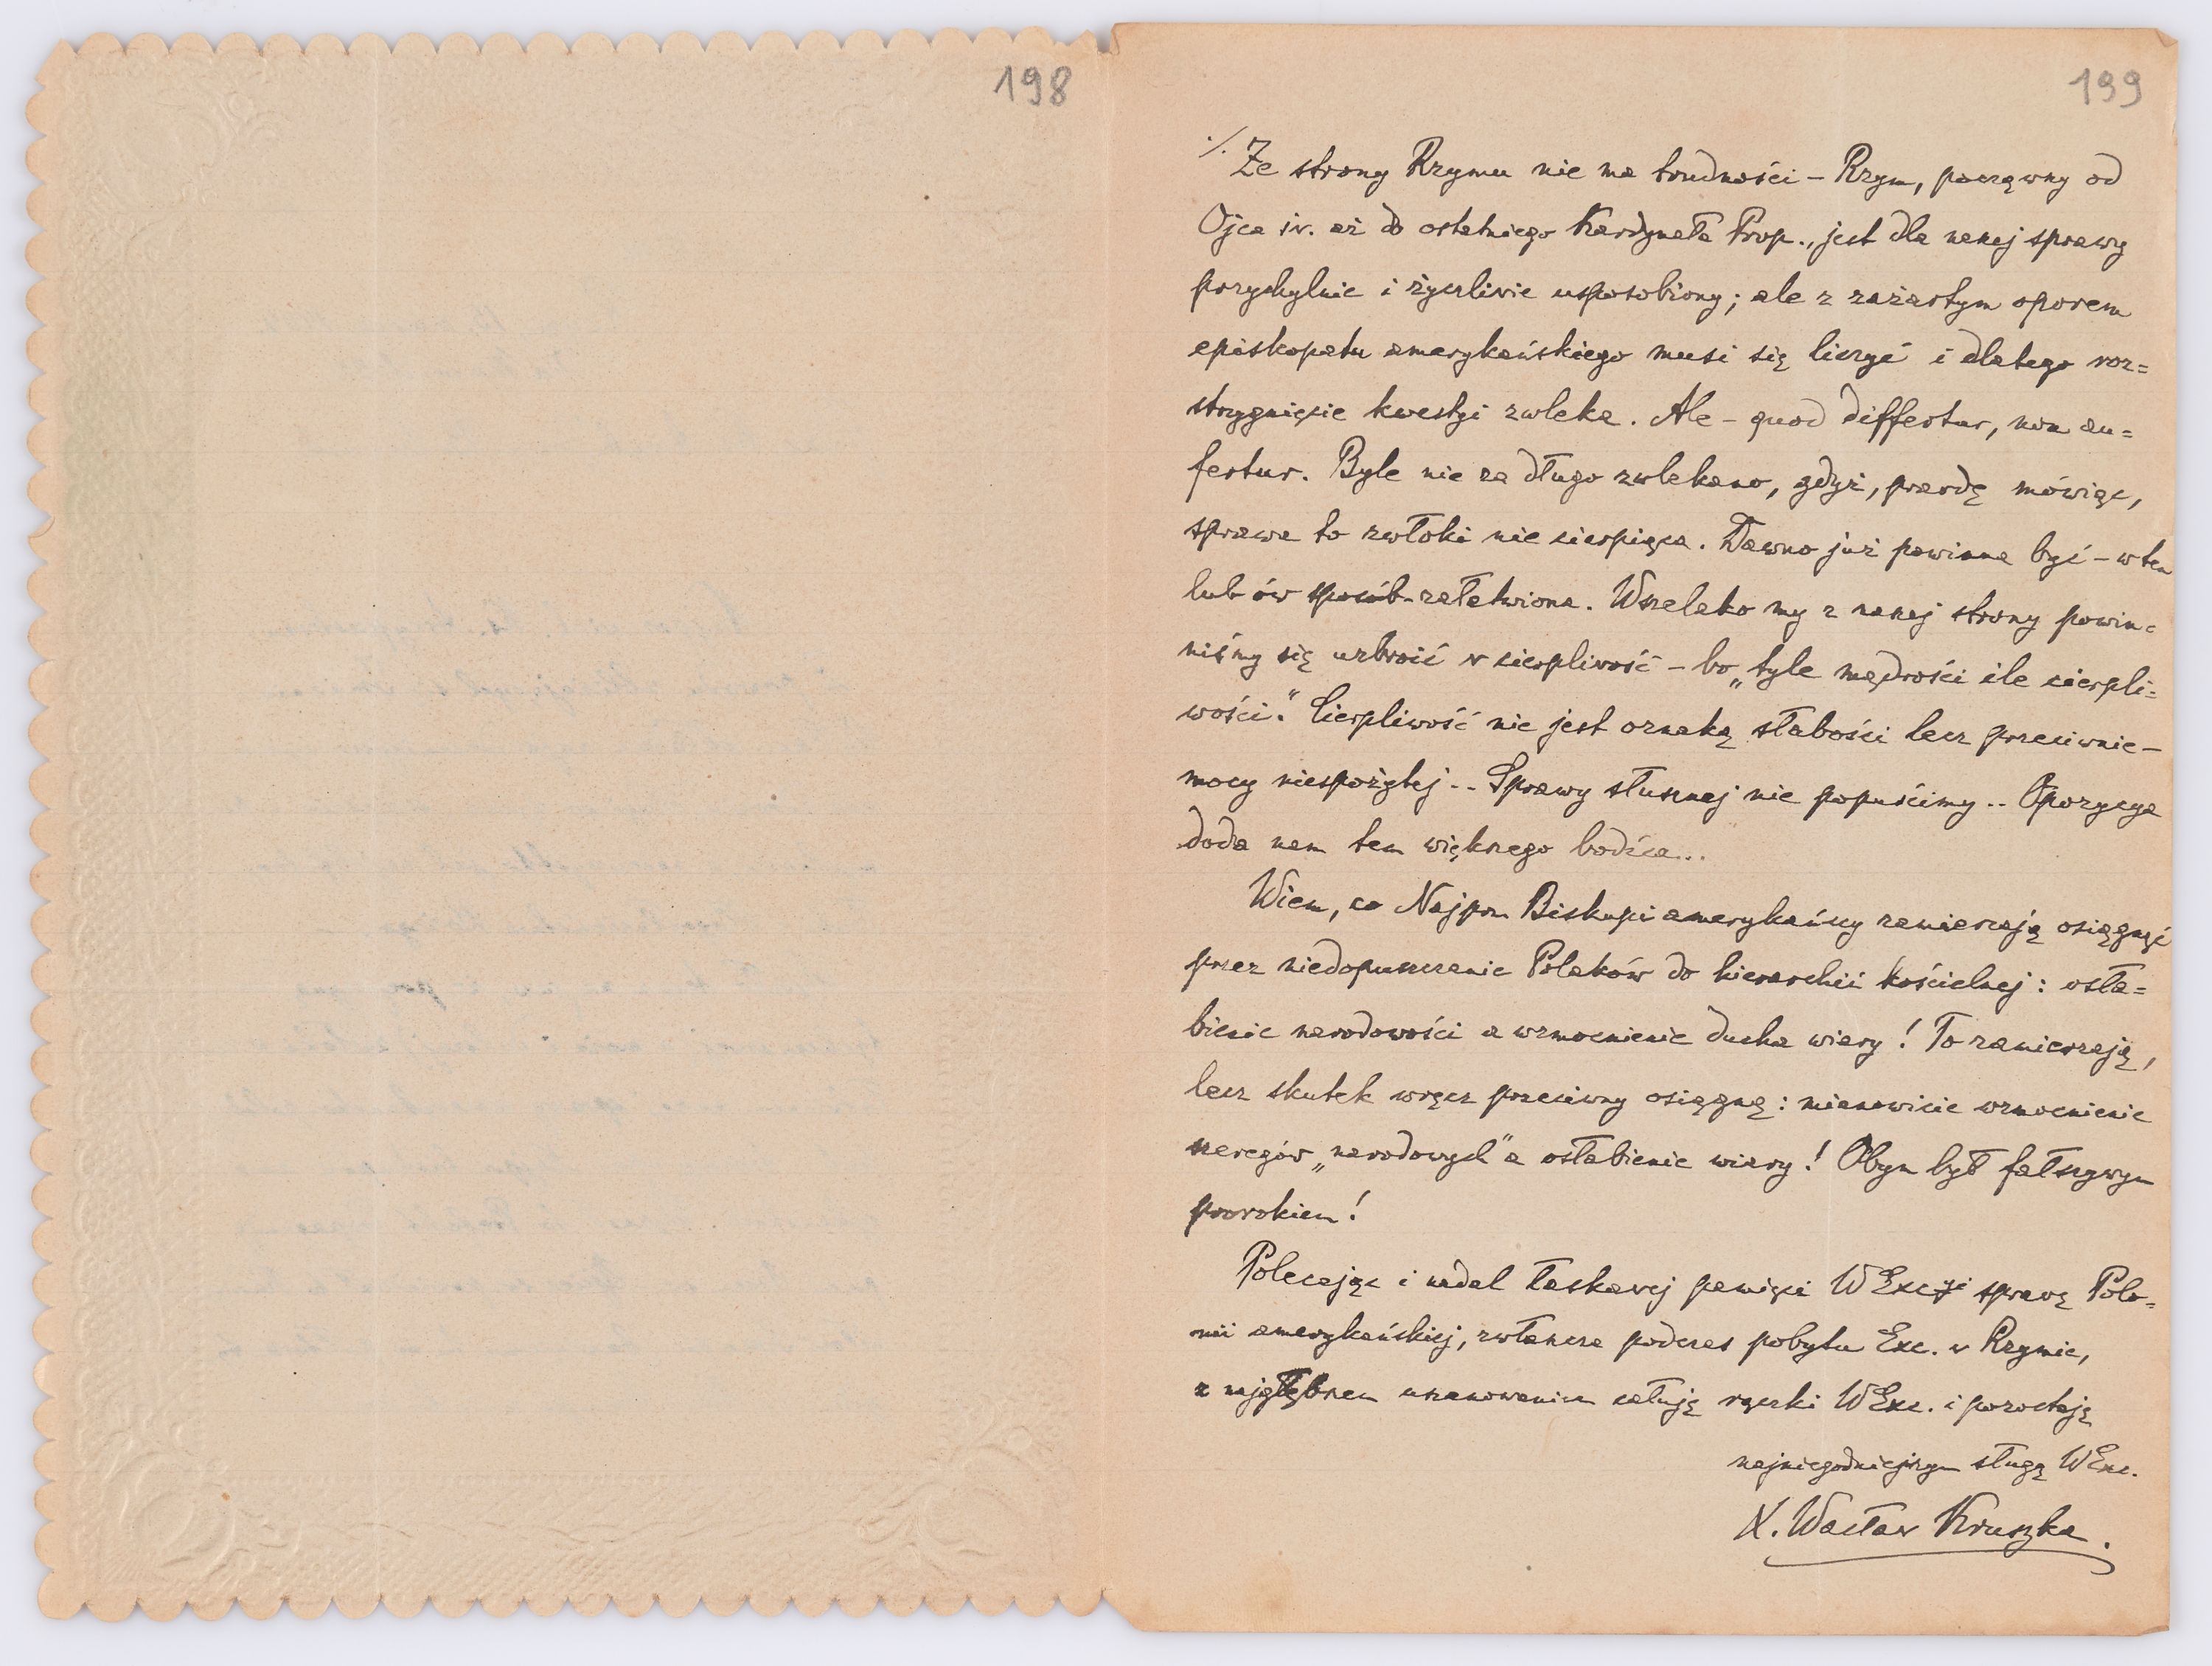 198
199
·/. Ze strony Rzymu nie ma trudności – Rzym, począwszy od
Ojca św. aż do ostatniego Kardynała Prop., jest dla naszej sprawy
przychylnie i życzliwie usposobiony; ale z zażartym oporem
episkopatu amerykańskiego musi się liczyć i dlatego roz=
strzygnięcie kwestyi zwleka. Ale – quod differtur, non au=
fertur. Byle nie za długo zwlekano, gdyż, prawdę mówiąc,
sprawa to zwłoki nie cierpiąca. Dawno już powinna być – w ten
lub ów sposób – załatwiona. Wszelako my z naszej strony powin=
niśmy się uzbroić w cierpliwość – bo „tyle mądrości ile cierpli=
wości.“ Cierpliwość nie jest oznaką słabości lecz przeciwnie –
mocy niespożytej .. Sprawy słusznej nie popuścimy .. Opozycya
doda nam tem większego bodźca...
Wiem, co Najprz. Biskupi amerykańscy zamierzają osiągnąć
przez niedopuszczanie Polaków do hierarchii kościelnej: osła=
bienie narodowości a wzmocnienie ducha wiary! To zamierzają,
lecz skutek wręcz przeciwny osiągną: mianowicie wzmocnienie
szeregów „narodowych“ a osłabienie wiary! Obym był fałszywym
prorokiem!
Polecając i nadal łaskawej pamięci WExcji sprawę Polo=
nii amerykańskiej, zwłaszcza podczas pobytu Exc. w Rzymie,
z najgłębszem uszanowaniem całuję rączki WExc. i pozostaję
najniegodniejszym sługą WExc.
X. Wacław Kruszka.